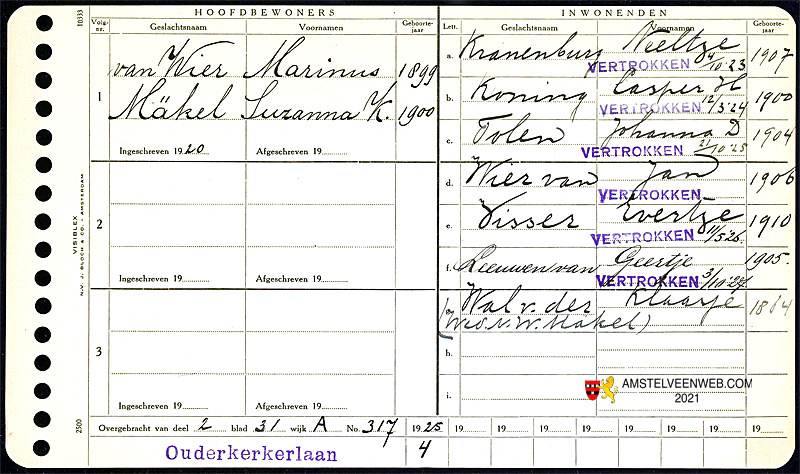 HOOFDBEWONERS
Volg-nr.
Geslachtsnaam
Voornamen
Geboorte-jaar
1
van Wier Marinus 1899
Mäkel Suzanna K. 1900
Ingeschreven 1920
Afgeschreven 19
2
Ingeschreven 19
Afgeschreven 19
3
Ingeschreven 19
Afgeschreven 19
INWONENDEN
Lett.
Geslachtsnaam
Voornamen
Geboorte-jaar
a. Kranenburg Neeltje 1907
VERTROKKEN 10-23
b. Koning Casper H 1900
VERTROKKEN 12/3'24
c. Tolen Johanna D 1904
VERTROKKEN 21/10'25
d. Wier van Jan 1906
VERTROKKEN
e. Visser Evertje 1910
VERTROKKEN 11/5'26.
f. Leeuwen van Geertje 1905.
VERTROKKEN 3/10'27
Wal v. der Klaasje
(Wed. v. W. Mäkel)
h.
i.
AMSTELVEENWEB.COM
2021
Overgebracht van deel 2 blad 31 wijk A No. 317
1925 19 19 19 19 19 19 19 19
Ouderkerkerlaan 4
10333
VISIBLEX
N.V. J. BLOCH & CO. - AMSTERDAM
2500